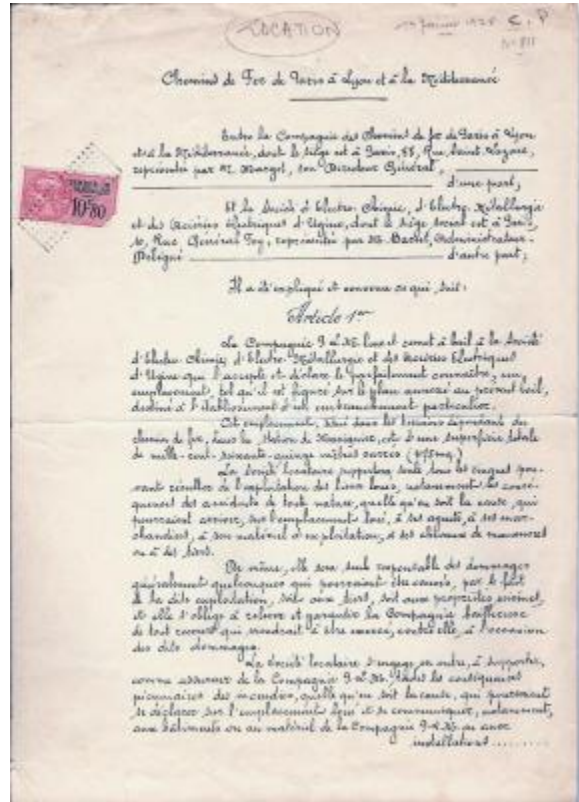 LOCATION
Janvier 1928 C. P
N° 811
Chemins de Fer de Paris à Lyon et à la Méditerranée
Entre la Compagnie des Chemins de fer de Paris à Lyon
et à la Méditerranée, dont le siège est à Paris, 88, Rue Saint-Lazare,
représentée par M. Margot, son Directeur Général,
d'une part,
10F80
Et la Société d'Electro-Chimie, d'Electro-Métallurgie
et des Aciéries Electriques d'Ugine, dont le siège social est à Paris
10, Rue Général Foy, représentée par M. Administrateur-
Délégué d'autre part,
Il a été expliqué et convenu ce qui suit:
Article 1er
La Compagnie P.L.M. loue et donne à bail à la Société
d'Electro-Chimie, d'Electro-Métallurgie et des Aciéries Electriques
d'Ugine qui l'accepte et déclare le parfaitement connaître, un
emplacement, tel qu'il est figuré sur le plan annexé au présent bail,
destiné à l'établissement d'un embranchement particulier.
Cet emplacement, situé dans les terrains dépendant du
chemin de fer, dans la station de est d'une superficie totale
de mille-cent-soixante-quinze mètres carrés
La Société locataire supportera seule tous les risques pou-
vant résulter de l'exploitation des lieux loués, notamment les consé-
quences des accidents de toute nature, quelle qu'en soit la cause, qui
pourraient arriver, sur l'emplacement loué, à ses agents, à ses mar-
chandises, à son matériel d'exploitation, à ses
ou à des tiers.
De même, elle sera seule responsable des dommages
généralement quelconques qui pourraient être causés, par le fait
de la dite exploitation, soit aux tiers, soit aux propriétés voisines,
et elle s'oblige à relever et garantir la Compagnie bailleresse
de tout recours qui viendrait à être exercé, contre elle, à l'occasion
des dits dommages.
La Société locataire s'engage, en outre, à supporter,
comme assureur de la Compagnie P.L.M. toutes les conséquences
pécuniaires des incendies, quelle qu'en soit la cause, qui pourraient
se déclarer sur l'emplacement loué et se communiquer, notamment,
aux bâtiments ou au matériel de la Compagnie P.L.M. ou aux
installations